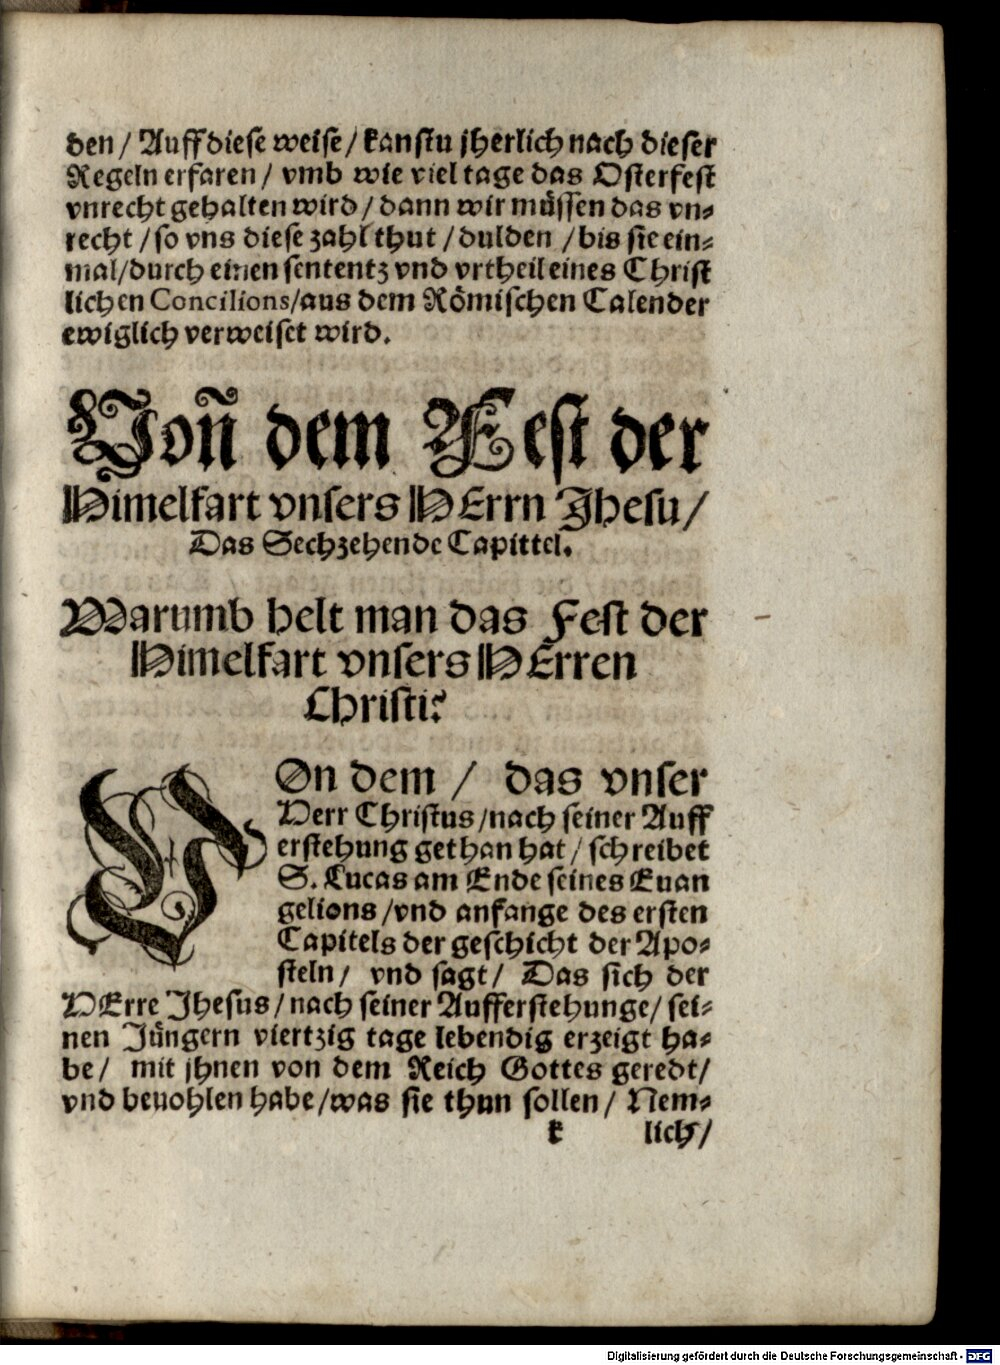 den / Auff diese weise / kanstu jherlich nach dieser
Regeln erfaren / vmb wie viel tage das Osterfest
vnrecht gehalten wird / dann wir müssen das vn⸗
recht / so vns diese zahl thut / dulden / bis sie ein⸗
mal / durch einen sententz vnd vrtheil eines Christ
lichen Concilions / aus dem Römischen Calender
ewiglich verweiset wird.
Von̄ dem Fest der
Himelfart vnsers HErrn Jhesu /
Das Sechzehende Capittel.
Warumb helt man das Fest der
Himelfart vnsers HErren
Christi?
VOn dem / das vnser
Herr Christus / nach seiner Auff
erstehung gethan hat / schreibet
S. Lucas am Ende seines Euan
gelions / vnd anfange des ersten
Capitels der geschicht der Apo⸗
steln / vnd sagt / Das sich der
HErre Jhesus / nach seiner Aufferstehunge / sei⸗
nen Jüngern viertzig tage lebendig erzeigt ha⸗
be / mit jhnen von dem Reich Gottes geredt /
vnd beuohlen habe / was sie thun sollen / Nem⸗
k lich /
Digitalisierung gefördert durch die Deutsche Forschungsgemeinschaft - DFG